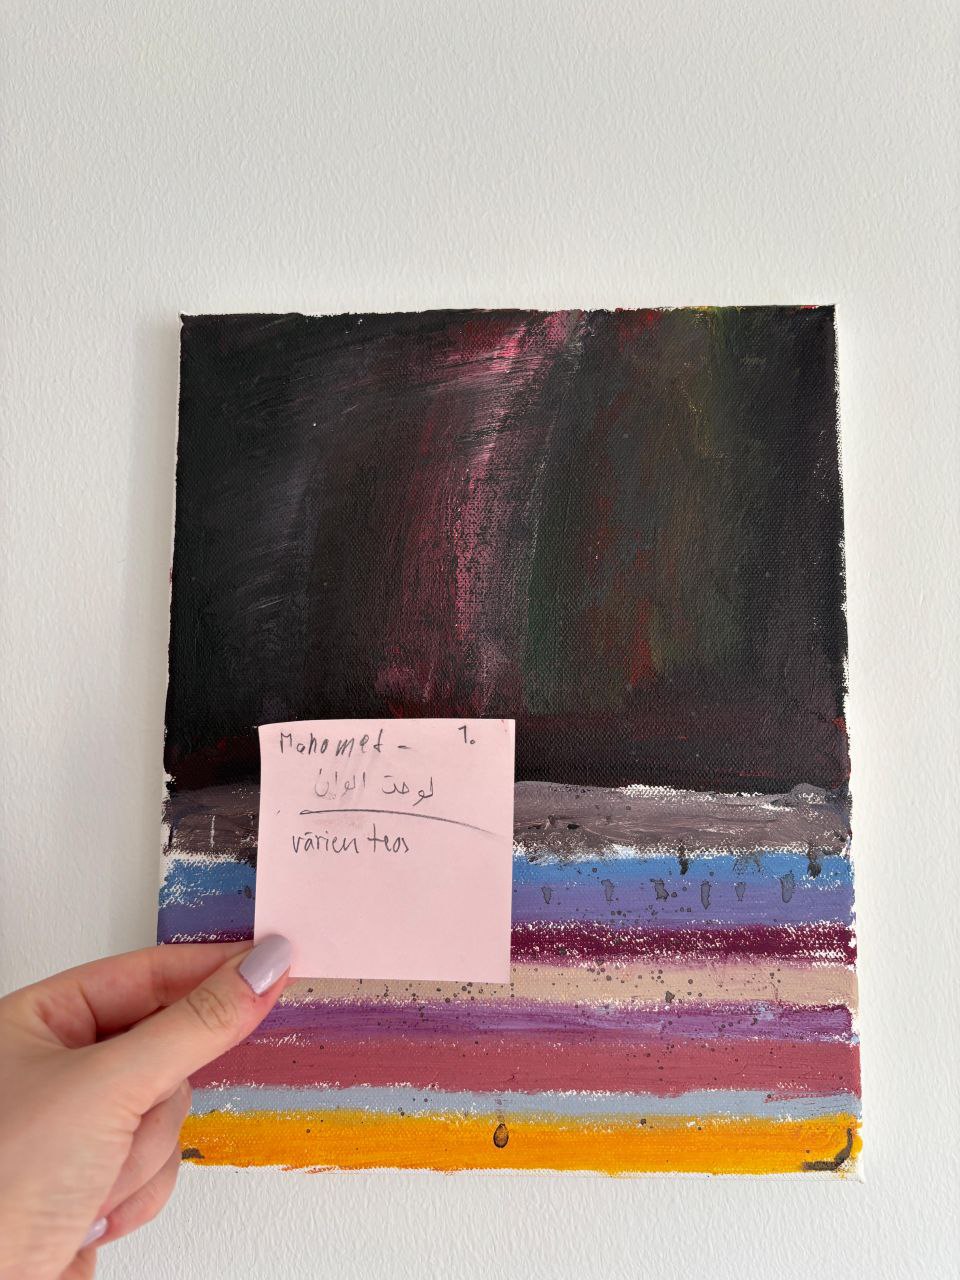 Mahomet - 1.
لوحت الوان
värien teos